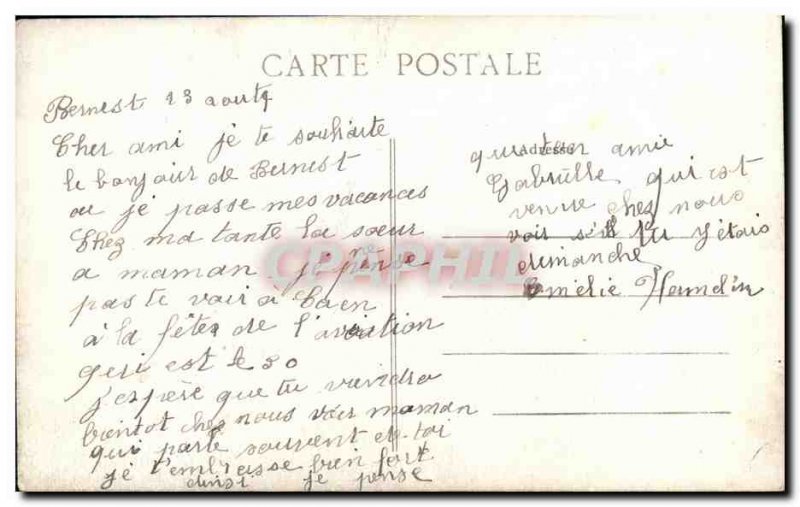 CARTE POSTALE
Bernest 23 août
Cher ami je te souhaite
le bonjour de Bernest
ou je passe mes vacances
Chez ma tante la sœur
a maman je pense
pas te voir à Caen
à la fête de l'aviation
qui est le 30
j'espère que tu viendra
bientot chez nous voir maman
qui parle souvent de toi
je t'embrasse bien fort
ainsi je pense
Adresse
que ton amie
Gabrielle qui est
venue chez nous
voir si tu y étais
dimanche
Emélie Hamelin
CPAPHIL